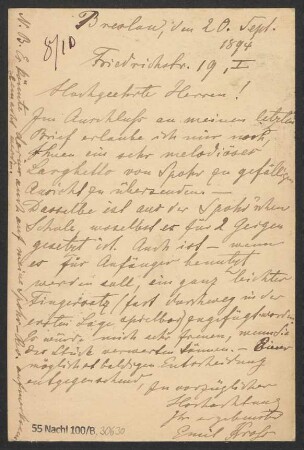 Breslau, den 20. Sept.
1894
8/10
Friedrichstr. 19, I
Hochgeehrte Herren!
Im Anschluss an meinen letzten
Brief erlaube ich mir noch,
Ihnen ein sehr melodiöses
Larghetto von Spohr zu gefälliger
Ansicht zu übersenden. –
Dasselbe ist aus der Spohr'schen
Schule, woselbst es für 2 Geigen
gesetzt ist. Auch ist – wenn
es für Anfänger benutzt
werden soll, ein ganz leichter
Fingersatz (fast durchweg in der
ersten Lage spielbar) angefügt worden.
Es würde mich sehr freuen, wenn Sie
das Stück verwerten können. – Einer
möglichst baldigen Entscheidung
entgegensehend,
In vorzüglicher
Hochachtung
Ihr ergebenster
Emil
N. B. Es könnte auch auf meine
55 Nachl 100/B, 30630